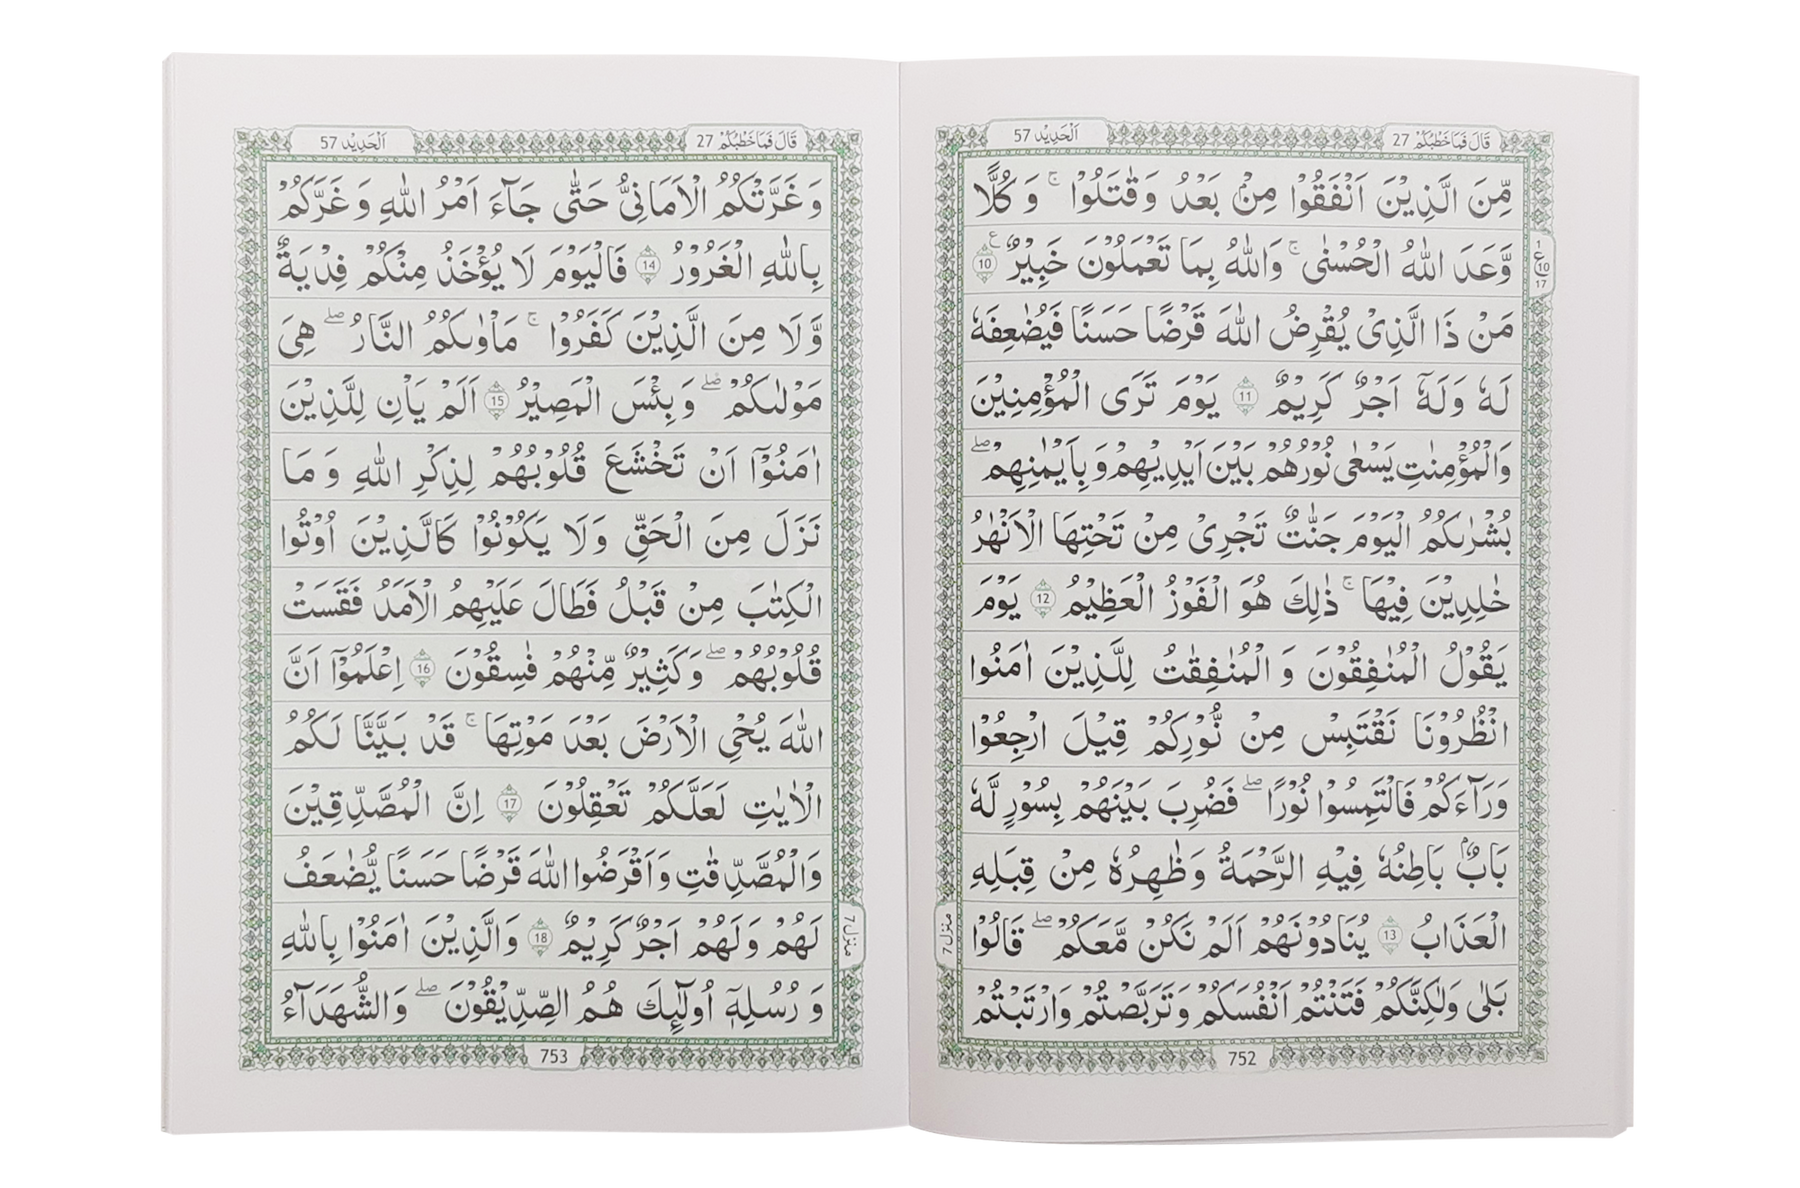 قَالَ فَمَا خَطْبُكُمْ 27
اَلْحَدِيْد 57
مِّنَ الَّذِيْنَ اَنْفَقُوْا مِنْۢ بَعْدُ وَقٰتَلُوْا ؕ وَ كُلًّا
وَّعَدَ اللّٰهُ الْحُسْنٰى ؕ وَاللّٰهُ بِمَا تَعْمَلُوْنَ خَبِيْرٌ 10
مَنْ ذَا الَّذِىْ يُقْرِضُ اللّٰهَ قَرْضًا حَسَنًا فَيُضٰعِفَهٗ
لَهٗ وَلَهٗۤ اَجْرٌ كَرِيْمٌ 11 يَوْمَ تَرَى الْمُؤْمِنِيْنَ
وَالْمُؤْمِنٰتِ يَسْعٰى نُوْرُهُمْ بَيْنَ اَيْدِيْهِمْ وَبِاَيْمٰنِهِمْ ۖ
بُشْرٰىكُمُ الْيَوْمَ جَنّٰتٌ تَجْرِىْ مِنْ تَحْتِهَا الْاَنْهٰرُ
خٰلِدِيْنَ فِيْهَا ۚ ذٰلِكَ هُوَ الْفَوْزُ الْعَظِيْمُ 12 يَوْمَ
يَقُوْلُ الْمُنٰفِقُوْنَ وَ الْمُنٰفِقٰتُ لِلَّذِيْنَ اٰمَنُوا
انْظُرُوْنَا نَقْتَبِسْ مِنْ نُّوْرِكُمْ قِيْلَ ارْجِعُوْا
وَرَآءَكُمْ فَالْتَمِسُوْا نُوْرًا ۖ فَضُرِبَ بَيْنَهُمْ بِسُوْرٍ لَّهٗ
بَابٌۢ بَاطِنُهٗ فِيْهِ الرَّحْمَةُ وَظٰهِرُهٗ مِنْ قِبَلِهِ
الْعَذَابُ 13 يُنَادُوْنَهُمْ اَلَمْ نَكُنْ مَّعَكُمْ ۖ قَالُوْا
بَلٰى وَلٰكِنَّكُمْ فَتَنْتُمْ اَنْفُسَكُمْ وَتَرَبَّصْتُمْ وَارْتَبْتُمْ
1
ع
10
17
منزل 7
752
قَالَ فَمَا خَطْبُكُمْ 27
اَلْحَدِيْد 57
وَ غَرَّتْكُمُ الْاَمَانِىُّ حَتّٰى جَآءَ اَمْرُ اللّٰهِ وَ غَرَّكُمْ
بِاللّٰهِ الْغَرُوْرُ 14 فَالْيَوْمَ لَا يُؤْخَذُ مِنْكُمْ فِدْيَةٌ
وَّلَا مِنَ الَّذِيْنَ كَفَرُوْا ۚ مَاْوٰىكُمُ النَّارُ ۖ هِىَ
مَوْلٰىكُمْ ۖ وَ بِئْسَ الْمَصِيْرُ 15 اَلَمْ يَاْنِ لِلَّذِيْنَ
اٰمَنُوْۤا اَنْ تَخْشَعَ قُلُوْبُهُمْ لِذِكْرِ اللّٰهِ وَ مَا
نَزَلَ مِنَ الْحَقِّ وَلَا يَكُوْنُوْا كَالَّذِيْنَ اُوْتُوا
الْكِتٰبَ مِنْ قَبْلُ فَطَالَ عَلَيْهِمُ الْاَمَدُ فَقَسَتْ
قُلُوْبُهُمْ ۖ وَكَثِيْرٌ مِّنْهُمْ فٰسِقُوْنَ 16 اِعْلَمُوْۤا اَنَّ
اللّٰهَ يُحْىِ الْاَرْضَ بَعْدَ مَوْتِهَا ۚ قَدْ بَيَّنَّا لَكُمُ
الْاٰيٰتِ لَعَلَّكُمْ تَعْقِلُوْنَ 17 اِنَّ الْمُصَّدِّقِيْنَ
وَالْمُصَّدِّقٰتِ وَاَقْرَضُوا اللّٰهَ قَرْضًا حَسَنًا يُّضٰعَفُ
لَهُمْ وَلَهُمْ اَجْرٌ كَرِيْمٌ 18 وَالَّذِيْنَ اٰمَنُوْا بِاللّٰهِ
وَ رُسُلِهٖۤ اُولٰٓئِكَ هُمُ الصِّدِّيْقُوْنَ ۖ وَالشُّهَدَآءُ
منزل 7
753